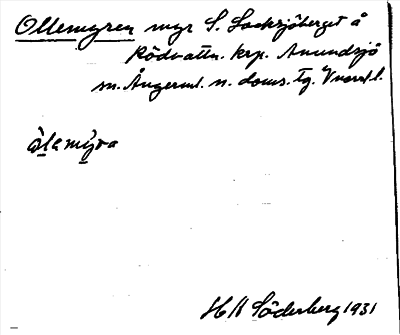 Ollemyren myr S. Locksjöberget å
Rödvattn. krp. Anundsjö
sn. Ångerml. n. doms. tg. Vnorrl. l.
ålamýra
H N Söderberg 1931